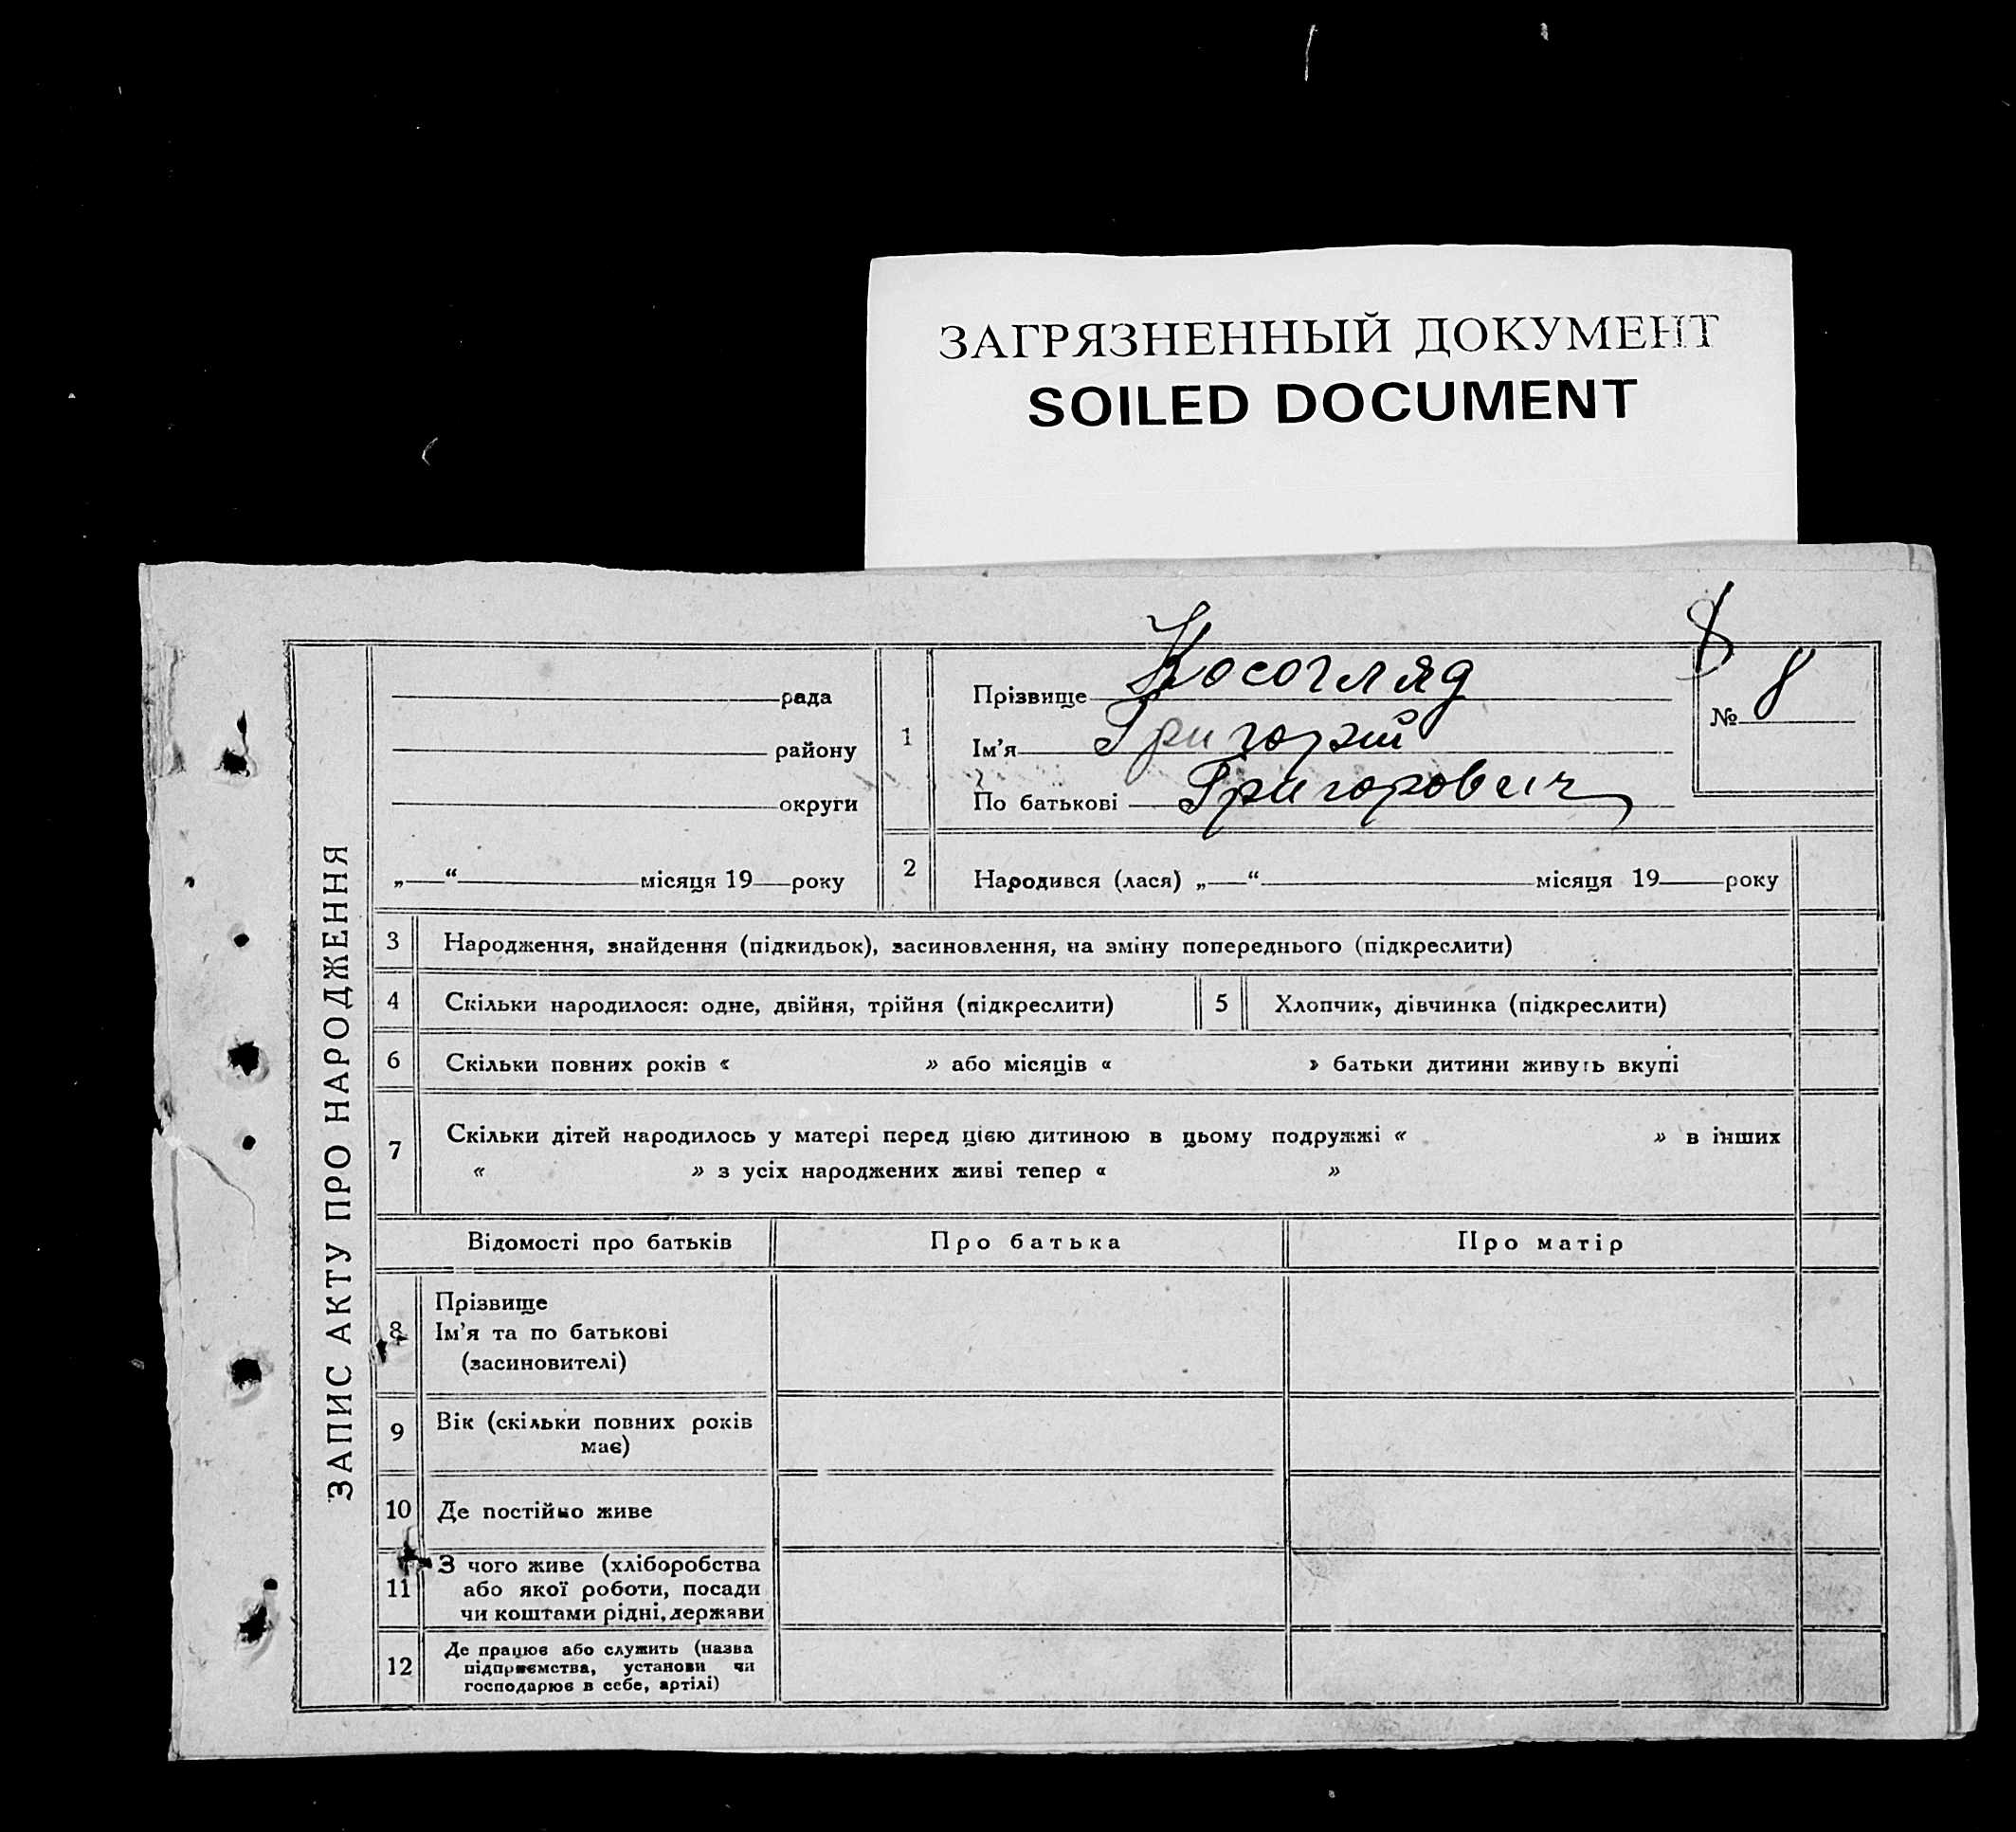 ЗАГРЯЗНЕННЫЙ ДОКУМЕНТ
SOILED DOCUMENT
8
ЗАПИС АКТУ ПРО НАРОДЖЕННЯ
рада
району
округи
„ “ місяця 19 року
1
Прізвище Косогляд
Ім'я Григорій
По батькові Григорович
№ 8
2 Народився (лася) „ “ місяця 19 року
3 Народження, знайдення (підкидьок), засиновлення, на зміну попереднього (підкреслити)
4 Скільки народилося: одне, двійня, трійня (підкреслити) 5 Хлопчик, дівчинка (підкреслити)
6 Скільки повних років « » або місяців « » батьки дитини живуть вкупі
7 Скільки дітей народилось у матері перед цією дитиною в цьому подружжі « » в інших
« » з усіх народжених живі тепер « »
Відомості про батьків Про батька Про матір
8 Прізвище
Ім'я та по батькові
(засиновителі)
9 Вік (скільки повних років
має)
10 Де постійно живе
11 З чого живе (хліборобства
або якої роботи, посади
чи коштами рідні, держави
12 Де працює або служить (назва
підприємства, установи чи
господарює в себе, артілі)